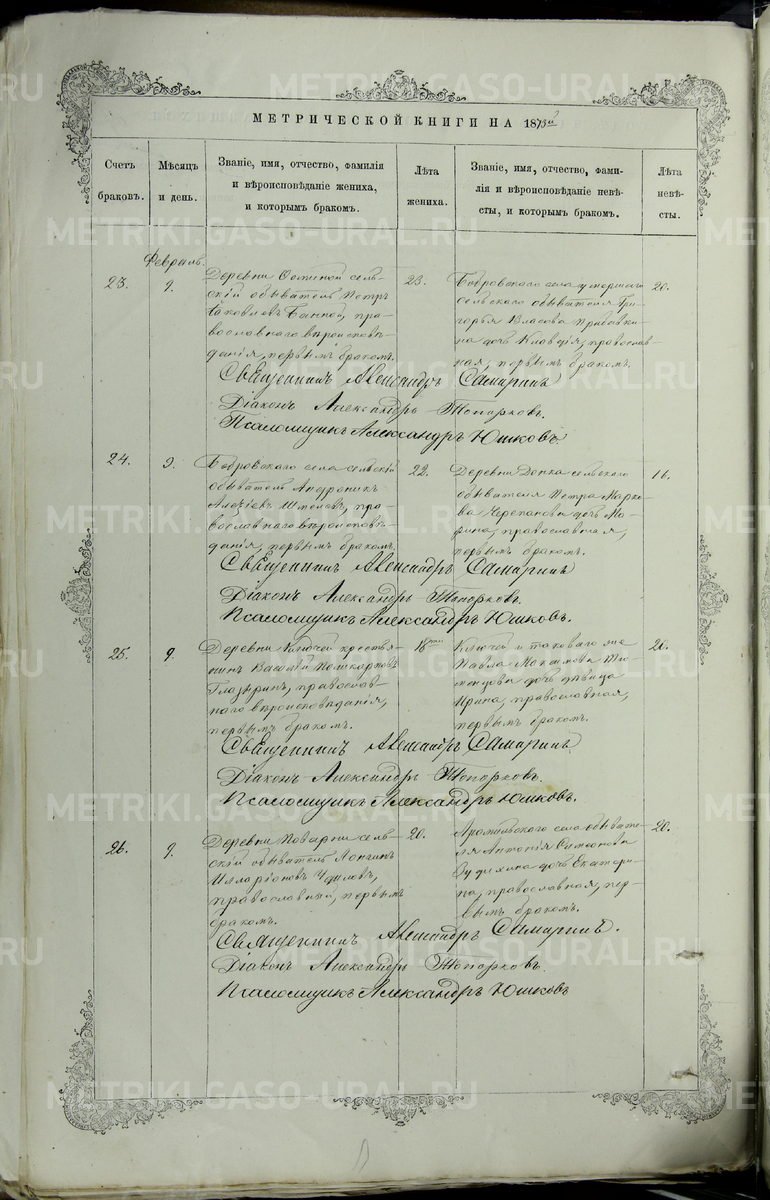 METRIKI.GASO-URAL.RU
МЕТРИЧЕСКОЙ КНИГИ НА 1873й
Счетъ браковъ.
Мѣсяцъ и день.
Званіе, имя, отчество, фамилія
и вѣроисповѣданіе жениха,
и которымъ бракомъ.
Лѣта
жениха.
Званіе, имя, отчество, фами-
лія и вѣроисповѣданіе невѣ-
сты, и которымъ бракомъ.
Лѣта
невѣ-
сты.
Февраль.
23.
9.
Деревни сель-
скій обыватель Петръ
Яковлевъ пра-
вославнаго вѣроисповѣ-
данія, первымъ бракомъ.
23.
Бобровскаго села умершаго
сельскаго обывателя Гри-
горья Власова
дочь Клавдія, православ-
ная, первымъ бракомъ.
20.
Священникъ Александръ Самаринъ
Діаконъ Александръ Топорковъ.
Псаломщикъ Александръ Юшковъ.
24.
9.
Бобровскаго села сельскій
обыватель Андроникъ
Алексіевъ Шмелевъ, пра-
вославнаго вѣроисповѣ-
данія, первымъ бракомъ.
22.
Деревни сельскаго
обывателя Петра Марко-
ва Черепанова дочь Ма-
рина, православная,
первымъ бракомъ.
16.
Священникъ Александръ Самаринъ
Діаконъ Александръ Топорковъ.
Псаломщикъ Александръ Юшковъ.
25.
9.
Деревни Ключей крестья-
нинъ Василій Поликарповъ
Глазыринъ, православ-
наго вѣроисповѣданія,
первымъ бракомъ.
18
Ключей и таковаго же
Павла Максимова
дочь дѣвица
Ирина, православная,
первымъ бракомъ.
20.
Священникъ Александръ Самаринъ.
Діаконъ Александръ Топорковъ.
Псаломщикъ Александръ Юшковъ.
26.
9.
Деревни Поварни сель-
скій обыватель Лонгинъ
Илларіоновъ
православный, первымъ
бракомъ.
20.
Арамильскаго села обывате-
ля Антонія Симеонова
дочь Екатери-
на, православная, пер-
вымъ бракомъ.
20.
Священникъ Александръ Самаринъ.
Діаконъ Александръ Топорковъ.
Псаломщикъ Александръ Юшковъ